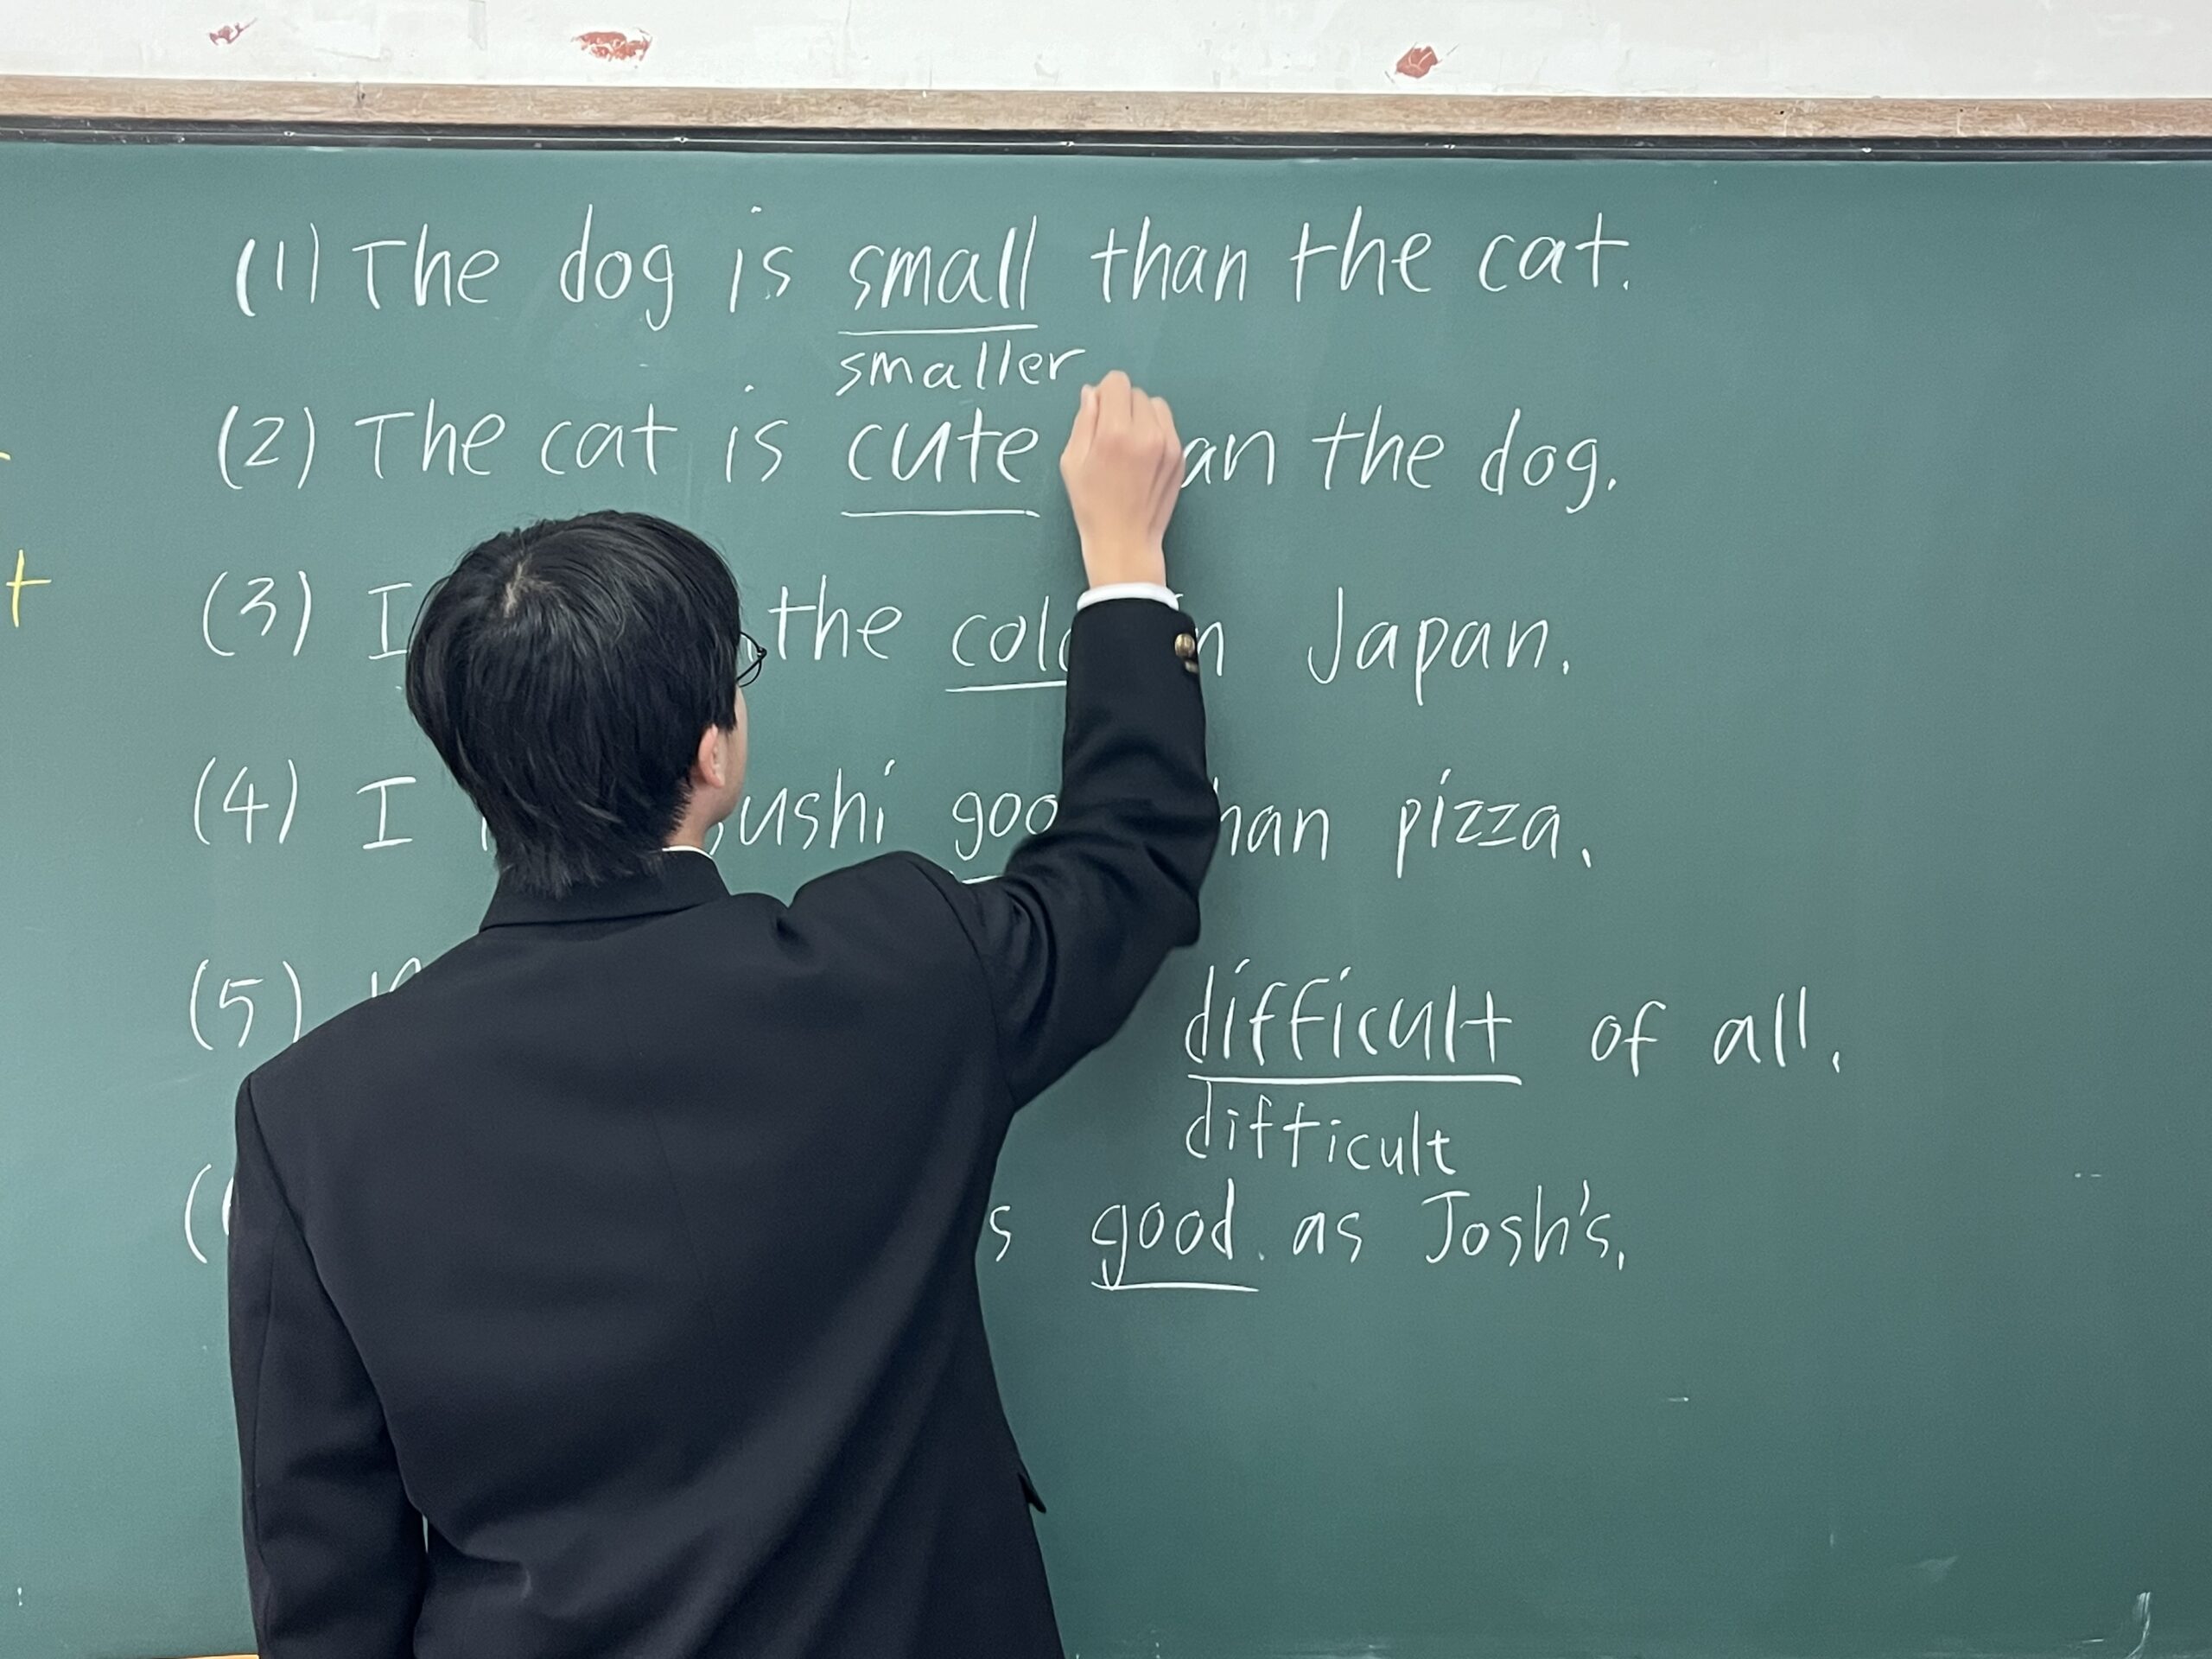 (1) The dog is small than the cat.
smaller
(2) The cat is cute the dog.
(3) I the in Japan.
(4) I sushi than pizza.
(5) difficult of all.
difficult
good as Josh's.